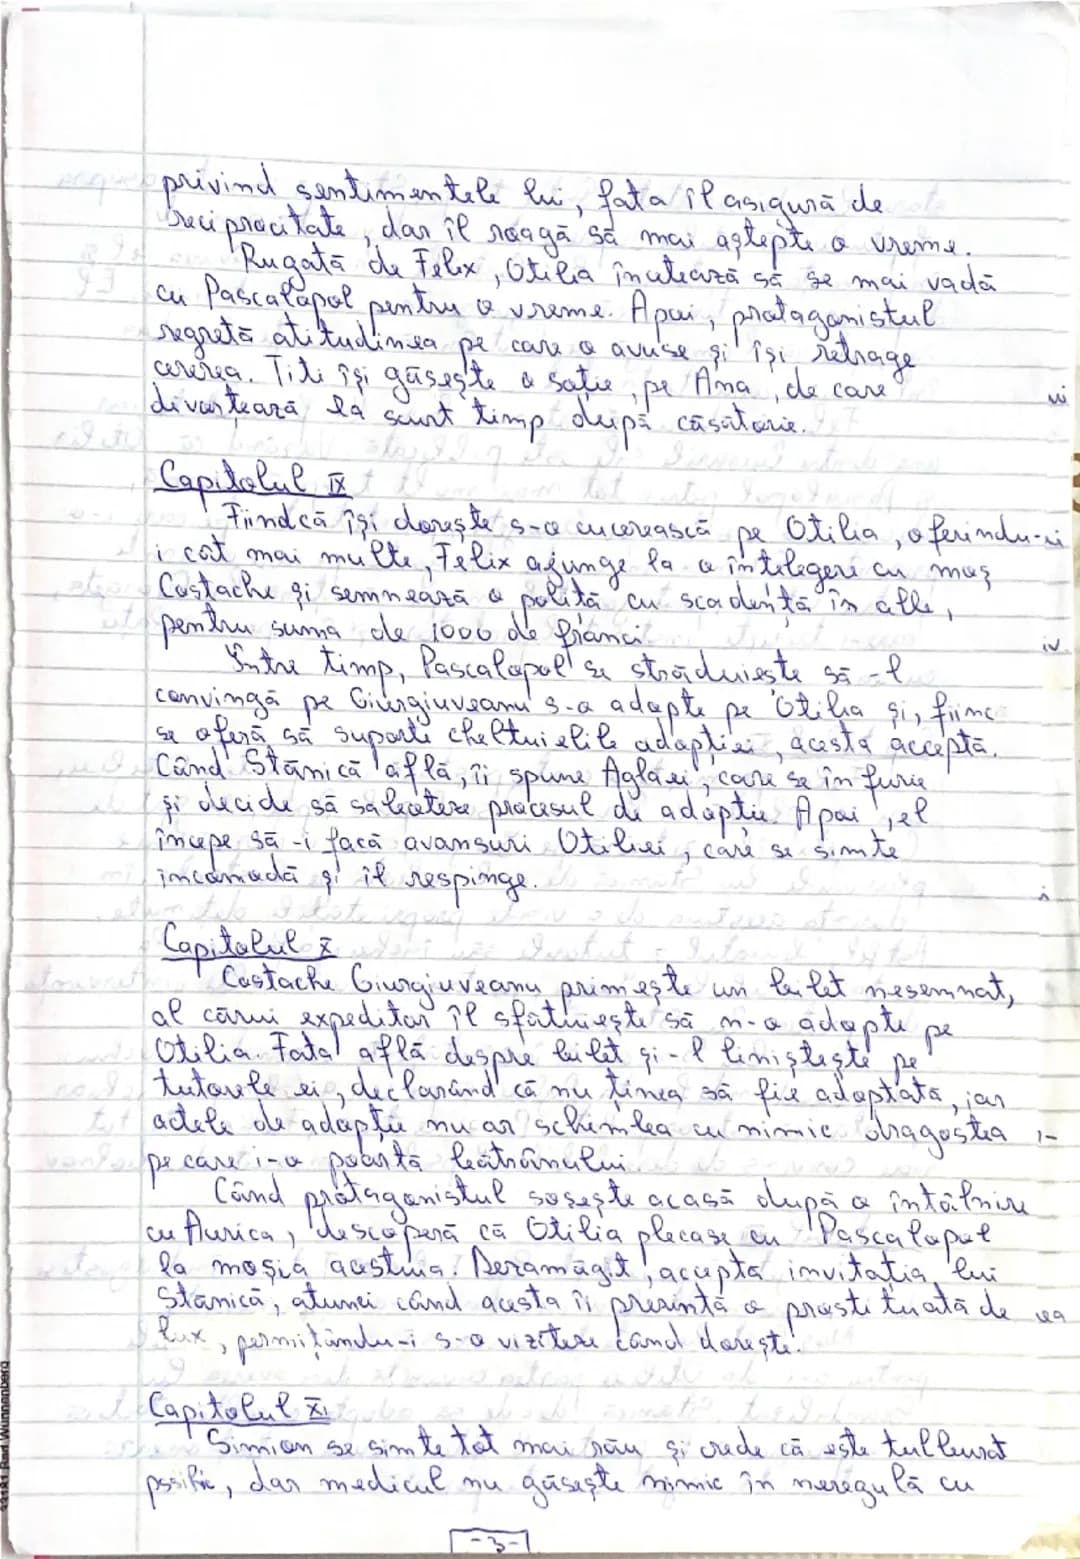 privind sentimentele lui, fata îl asigură de
reciprocitate, dar îl roagă să mai aștepte o vreme.
Rugată de Felix, Otilia încetează să se mai vadă
cu Pascalopol pentru o vreme. Apoi, protagonistul
regretă atitudinea pe care o avuse și își retrage
cererea. Titi își găsește o soție, pe Ana, de care
divorțează la scurt timp după căsătorie.
Capitolul IX
Fiindcă își dorește s-o cucerească pe Otilia, oferindu-i
cât mai multe, Felix ajunge la o înțelegere cu moș
Costache și semnează o poliță cu scadență în alb,
pentru suma de 1000 de franci.
Între timp, Pascalopol se străduiește să-l
convingă pe Giurgiuveanu s-o adopte pe Otilia și, fiinc
se oferă să suporte cheltuielile adopției, acesta acceptă.
Când Stănică află, îi spune Aglaei, care se înfurie
și decide să saboteze procesul de adopție. Apoi, el
începe să-i facă avansuri Otiliei, care se simte
incomodă și îl respinge.
Capitolul X
Costache Giurgiuveanu primește un bilet nesemnat,
al cărui expeditor îl sfătuiește să n-o adopte pe
Otilia. Fata află despre bilet și-l liniștește pe
tutorele ei, declarând că nu ținea să fie adoptată, iar
actele de adopție nu ar schimba cu nimic dragostea
pe care i-o poartă bătrânului.
Când protagonistul sosește acasă după o întâlnire
cu Aurica, descoperă că Otilia plecase cu Pascalopol
la moșia acestuia. Dezamăgit, acceptă invitația lui
Stănică, atunci când acesta îi prezintă o prostituată de
lux, permițându-i s-o viziteze când dorește.
Capitolul XI
Simion se simte tot mai rău și crede că este tulburat
psihic, dar medicul nu găsește nimic în neregulă cu
-3-